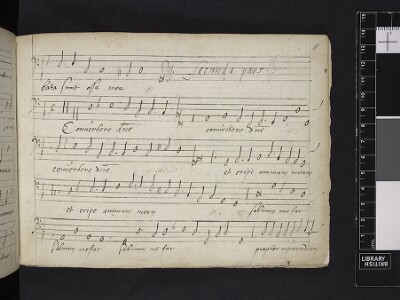 11
Secunda pars
bata sunt ossa mea
Convertere dñe convertere dñe
convertere dñe et eripe animam meam
et eripe animam meam salvum me fac
salvum me fac salvum me fac propter misericordiam
LIBRARY
BRITISH